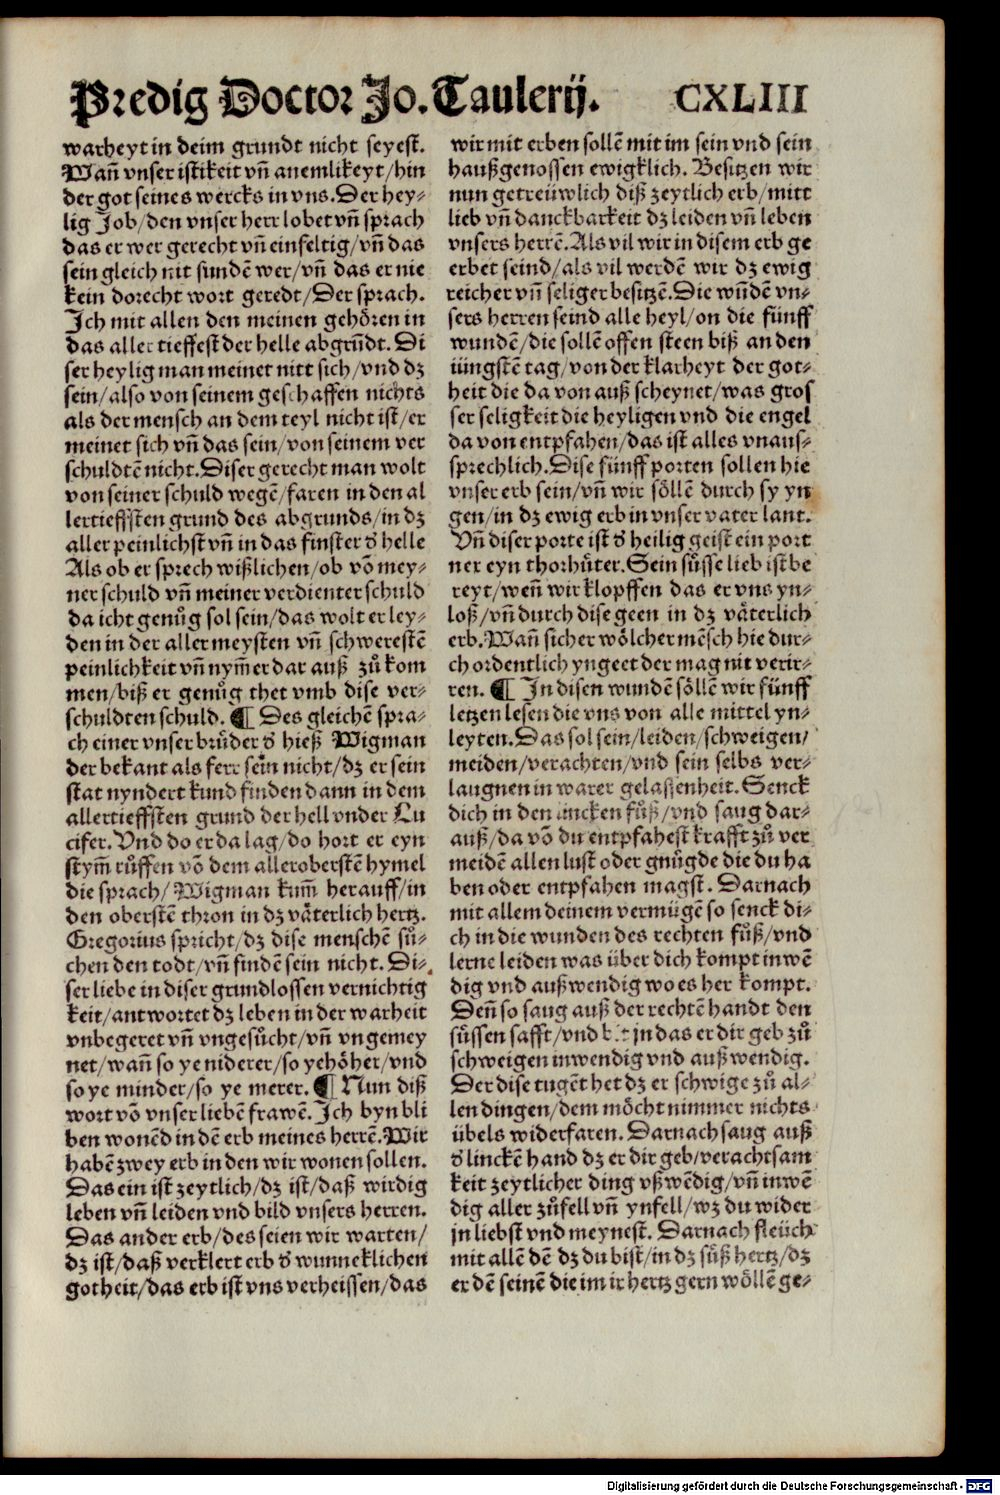 Predig Doctor Jo. Taulerij. CXLIII
warheyt in deim grundt nicht seyest.
Wañ vnser istikeit vñ anemlikeyt/hin
der got seines wercks in vns. Der hey-
lig Job/den vnser herr lobet vñ sprach
das er wer gerecht vñ einfeltig/vñ das
sein gleich nit sundē wer/vñ das er nie
kein dorecht wort geredt/Der sprach.
Ich mit allen den meinen gehören in
das aller tieffest der helle abgrūdt. Di
ser heylig man meinet nitt sich/vnd dz
sein/also von seinem geschaffen nichts
als der mensch an dem teyl nicht ist/er
meinet sich vñ das sein/von seinem ver
schuldtē nicht. Diser gerecht man wolt
von seiner schuld wegē/faren in den al
lertieffsten grund des abgrunds/in dz
aller peinlichst vñ in das finster d' helle
Als ob er sprech wißlichen/ob vō mey-
ner schuld vñ meiner verdienter schuld
da icht genůg sol sein/das wolt er ley-
den in der aller meysten vñ schwerestē
peinlichkeit vñ nym̄er dar auß zů kom
men/biß er genůg thet vmb dise ver-
schuldten schuld. ¶ Des gleichē spra-
ch einer vnser brůder d' hieß Wigman
der bekant als ferr sein nicht/dz er sein
stat nyndert kund finden dann in dem
allertieffsten grund der hell vnder Lu
cifer. Vnd do er da lag/do hort er eyn
stym̄ růffen vō dem alleroberstē hymel
die sprach/Wigman kum̄ herauff/in
den oberstē thron in dz väterlich hertz.
Gregorius spricht/dz dise menschē sů-
chen den todt/vñ findē sein nicht. Di-
ser liebe in diser grundlossen vernichtig
keit/antwortet dz leben in der warheit
vnbegeret vñ vngesůcht/vñ vngemey
net/wañ so ye niderer/so ye höher/vnd
so ye minder/so ye merer. ¶ Nun diß
wort vō vnser liebē frawē. Ich byn bli
ben wonēd in dē erb meines herrē. Wir
habē zwey erb in den wir wonen sollen.
Das ein ist zeytlich/dz ist/daß wirdig
leben vñ leiden vnd bild vnsers herren.
Das ander erb/des seien wir warten/
dz ist/daß verklert erb d' wunneklichen
gotheit/das erb ist vns verheissen/das
wir mit erben sollē mit im sein vnd sein
haußgenossen ewigklich. Besitzen wir
nun getreüwlich diß zeytlich erb/mitt
lieb vñ danckbarkeit dz leiden vñ leben
vnsers herrē. Als vil wir in disem erb ge
erbet seind/als vil werdē wir dz ewig
reicher vñ seliger besitzē. Die wūdē vn-
sers herren seind alle heyl/on die fünff
wundē/die sollē offen steen biß an den
iüngstē tag/von der klarheyt der got-
heit die da von auß scheynet/was gros
ser seligkeit die heyligen vnd die engel
da von entpfahen/das ist alles vnaus-
sprechlich. Dise fünff porten sollen hie
vnser erb sein/vñ wir söllē durch sy yn
gen/in dz ewig erb in vnser vater lant.
Vñ diser porte ist d' heilig geist ein port
ner eyn thorhůter. Sein sůsse lieb ist be
reyt/weñ wir klopffen das er vns yn-
loß/vñ durch dise geen in dz väterlich
erb. Wañ sicher wölcher mēsch hie dur-
ch ordentlich yngeet der mag nit verir-
ren. ¶ In disen wundē söllē wir fünff
letzen lesen die vns von alle mittel yn-
leyten. Das sol sein/leiden/schweigen/
meiden/verachten/vnd sein selbs ver-
laugnen in warer gelassenheit. Senck
dich in den lincken fůß/vnd saug dar-
auß/da vō du entpfahest krafft zů ver
meidē allen lust oder gnůgde die du ha
ben oder entpfahen magst. Darnach
mit allem deinem vermügē so senck di-
ch in die wunden des rechten fůß/vnd
lerne leiden was über dich kompt inwē
dig vnd außwendig wo es her kompt.
Deñ so saug auß der rechtē handt den
sůssen safft/vnd bit jn das er dir geb zů
schweigen inwendig vnd außwendig.
Der dise tugēt het dz er schwige zů al-
len dingen/dem möcht nimmer nichts
übels widerfaren. Darnach saug auß
d' linckē hand dz er dir geb/verachtsam
keit zeytlicher ding vßwēdig/vñ inwē
dig aller zůfell vñ ynfell/wz du wider
jn liebst vnd meynest. Darnach fleüch
mit allē dē dz du bist/in dz sůß hertz/dz
er dē seinē die im ir hertz gern wöllē ge-
Digitalisierung gefördert durch die Deutsche Forschungsgemeinschaft - DFG